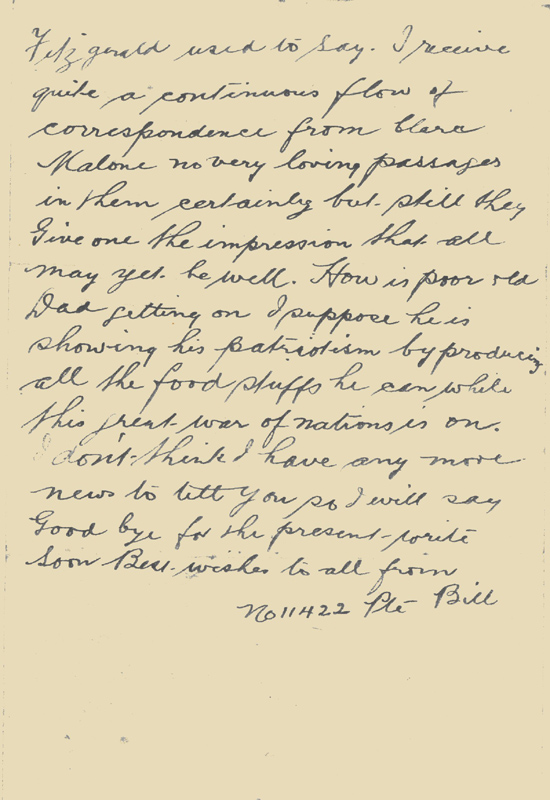 Fitzgerald used to say. I receive
quite a continuous flow of
correspondence from Clare
Malone no very loving passages
in them certainly but still they
Give one the impression that all
may yet be well. How is poor old
Dad getting on I suppose he is
showing his patriotism by producing
all the food stuffs he can while
this great war of nations is on.
I don't think I have any more
news to tell you so I will say
Good bye for the present write
soon Best wishes to all from
No 11422 Pte Bill